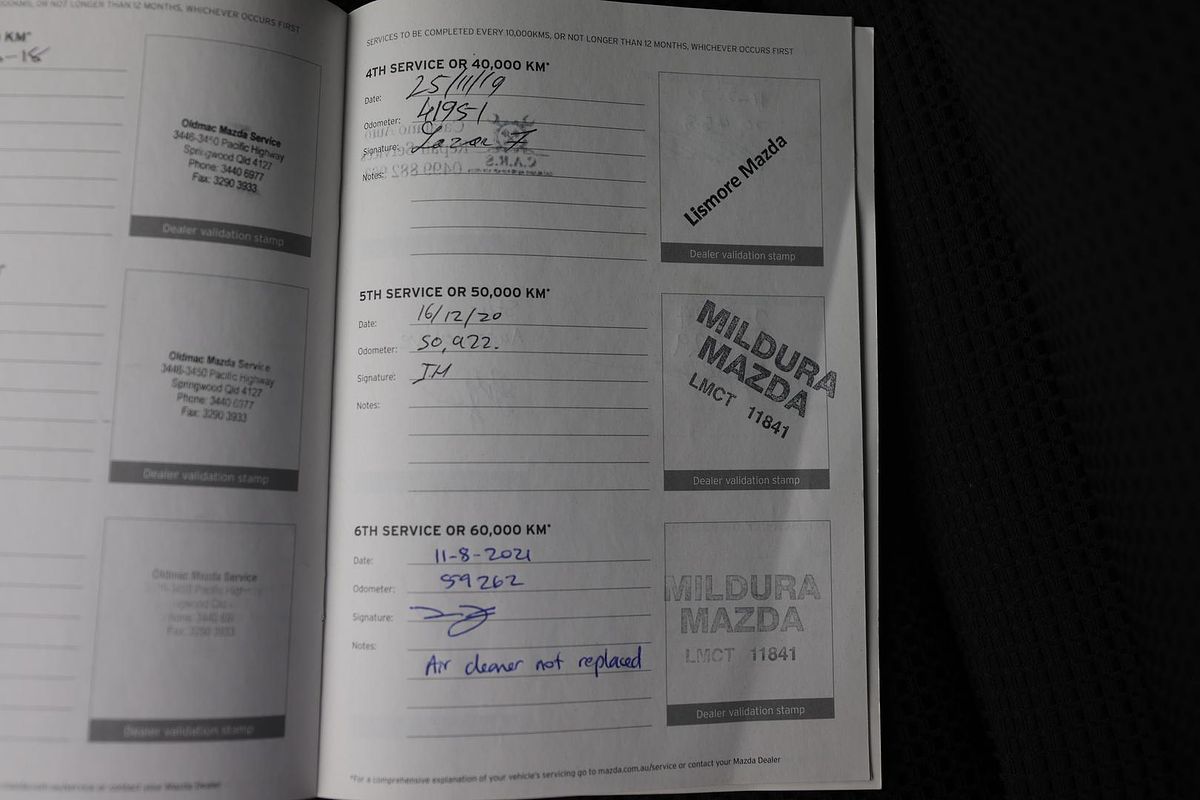 000KMS, OR NOT LONGER THAN 12 MONTHS, WHICHEVER OCCURS FIRST
KM*
-18
Oldmac Mazda Service
3446-3450 Pacific Highway
Springwood Qld 4127
Phone: 3440 6977
Fax: 3290 3933
Dealer validation stamp
Oldmac Mazda Service
3446-3450 Pacific Highway
Springwood Qld 4127
Phone: 3440 6977
Fax: 3290 3933
Dealer validation stamp
Oldmac Mazda Service
Pacific
Qld
Fax: 3290 3933
Dealer validation stamp
or contact your Mazda Dealer
SERVICES TO BE COMPLETED EVERY 10,000KMS, OR NOT LONGER THAN 12 MONTHS, WHICHEVER OCCURS FIRST
4TH SERVICE OR 40,000 KM*
Date: 25/11/19
Odometer: 41951
Signature:
Notes:
Lismore Mazda
Dealer validation stamp
5TH SERVICE OR 50,000 KM*
Date: 16/12/20
Odometer: 50,922.
Signature: IM
Notes:
MILDURA
MAZDA
LMCT 11841
Dealer validation stamp
6TH SERVICE OR 60,000 KM*
Date: 11-8-2021
Odometer: 59262
Signature:
Notes:
Air cleaner not replaced
MILDURA
MAZDA
LMCT 11841
Dealer validation stamp
*For a comprehensive explanation of your vehicle's servicing go to mazda.com.au/service or contact your Mazda Dealer